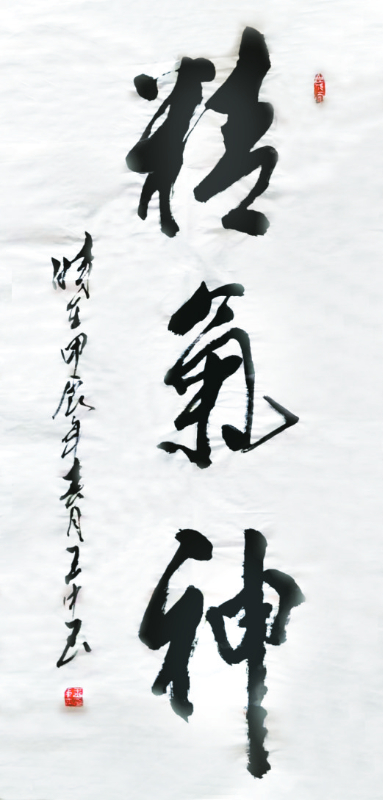 精氣神
時在甲辰年春月王中玉